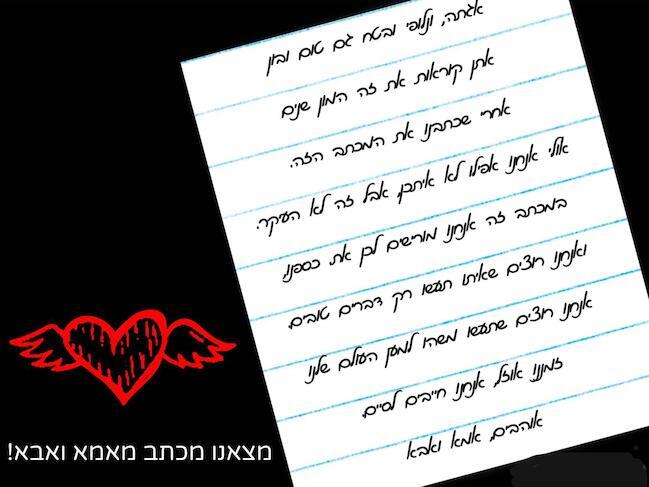 אגתה, ונלופי ובטח גם טום ובון
אתן קוראות את זה המון שנים
אחרי שכתבנו את המכתב הזה.
אולי אנחנו אפילו לא איתכן, אבל זה לא העיקר.
במכתב זה אנחנו מורישים לכן את כספנו,
ואנחנו רוצים שאיתו תעשו רק דברים טובים.
אנחנו רוצים שתעשו משהו למען העולם שלנו
זמננו אוזל, אנחנו חייבים לסיים.
אוהבים, אמא ואבא
מצאנו מכתב מאמא ואבא!